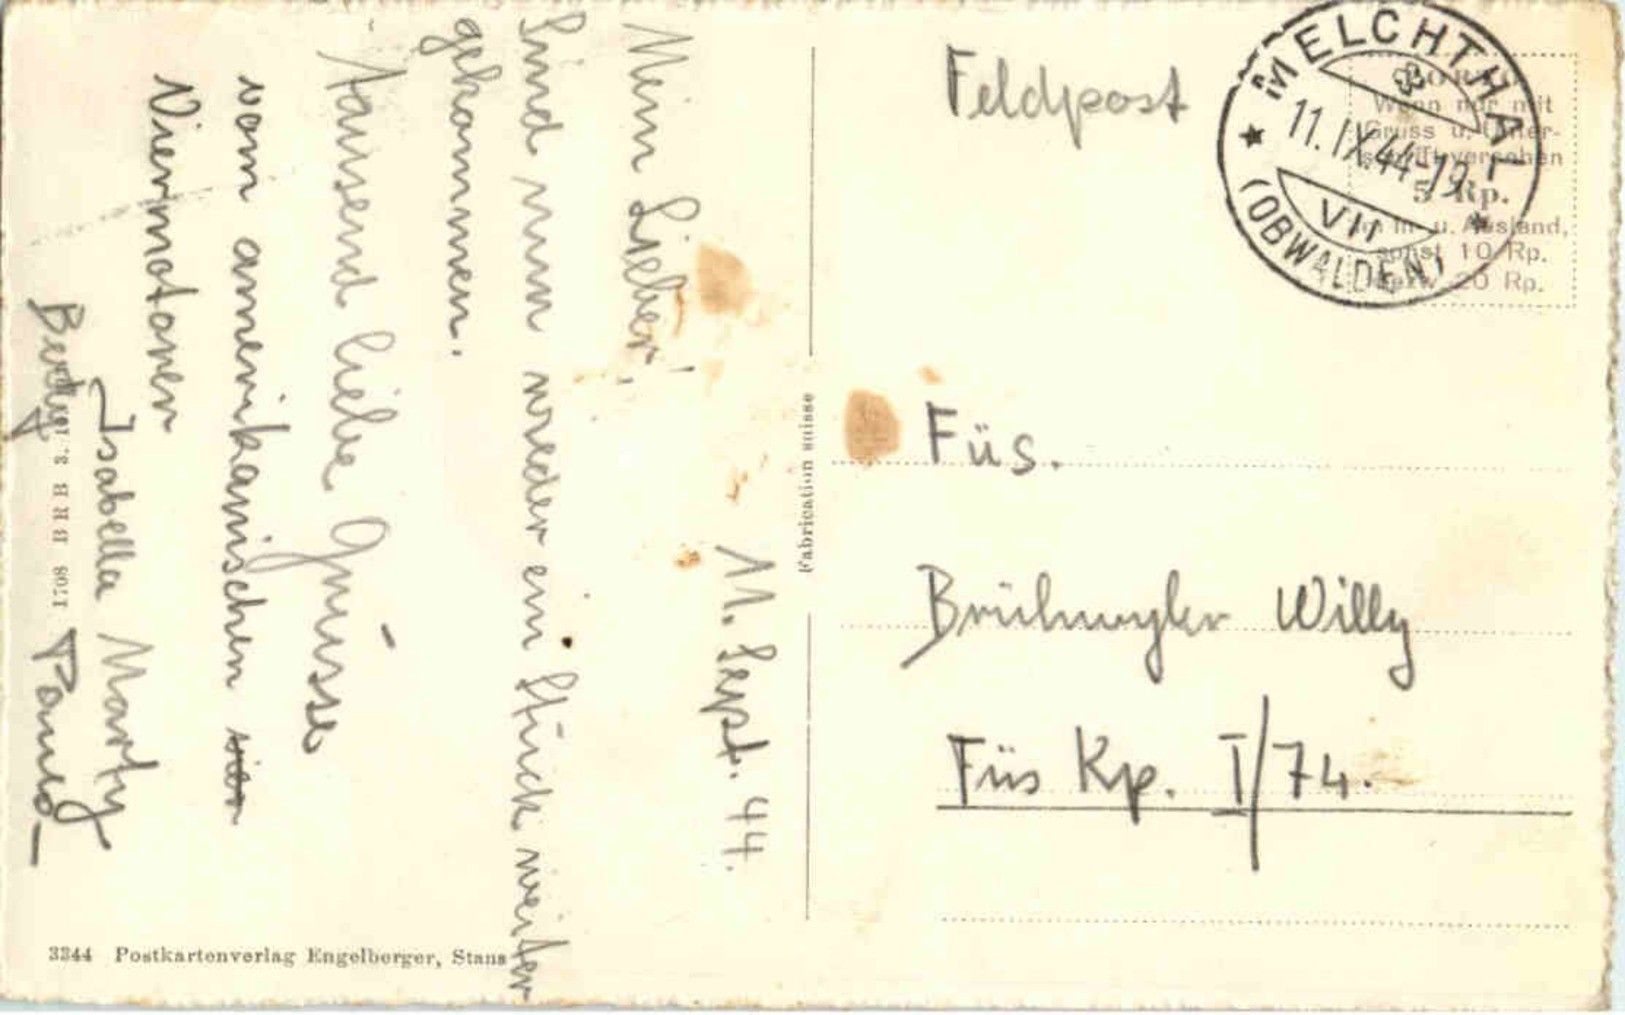 11. Sept. 44.
Mein Lieber!
Sind nun wieder ein Stück weiter
gekommen.
Tausend liebe Grüsse
vom amerikanischen
Viermotoren
Isabella Marty
Betty
1708 BRB 3.
3344 Postkartenverlag Engelberger, Stans
Fabrication suisse
Feldpost
MELCHTHAL
11.IX.44-19
VII
(OBWALDEN)
PORTO
Wenn nur mit
Gruss u. Unter-
schrift versehen
5 Rp.
im In- u. Ausland,
sonst 10 Rp.
bezw. 20 Rp.
Füs.
Brühwyler Willy
Füs Kp. I/74.